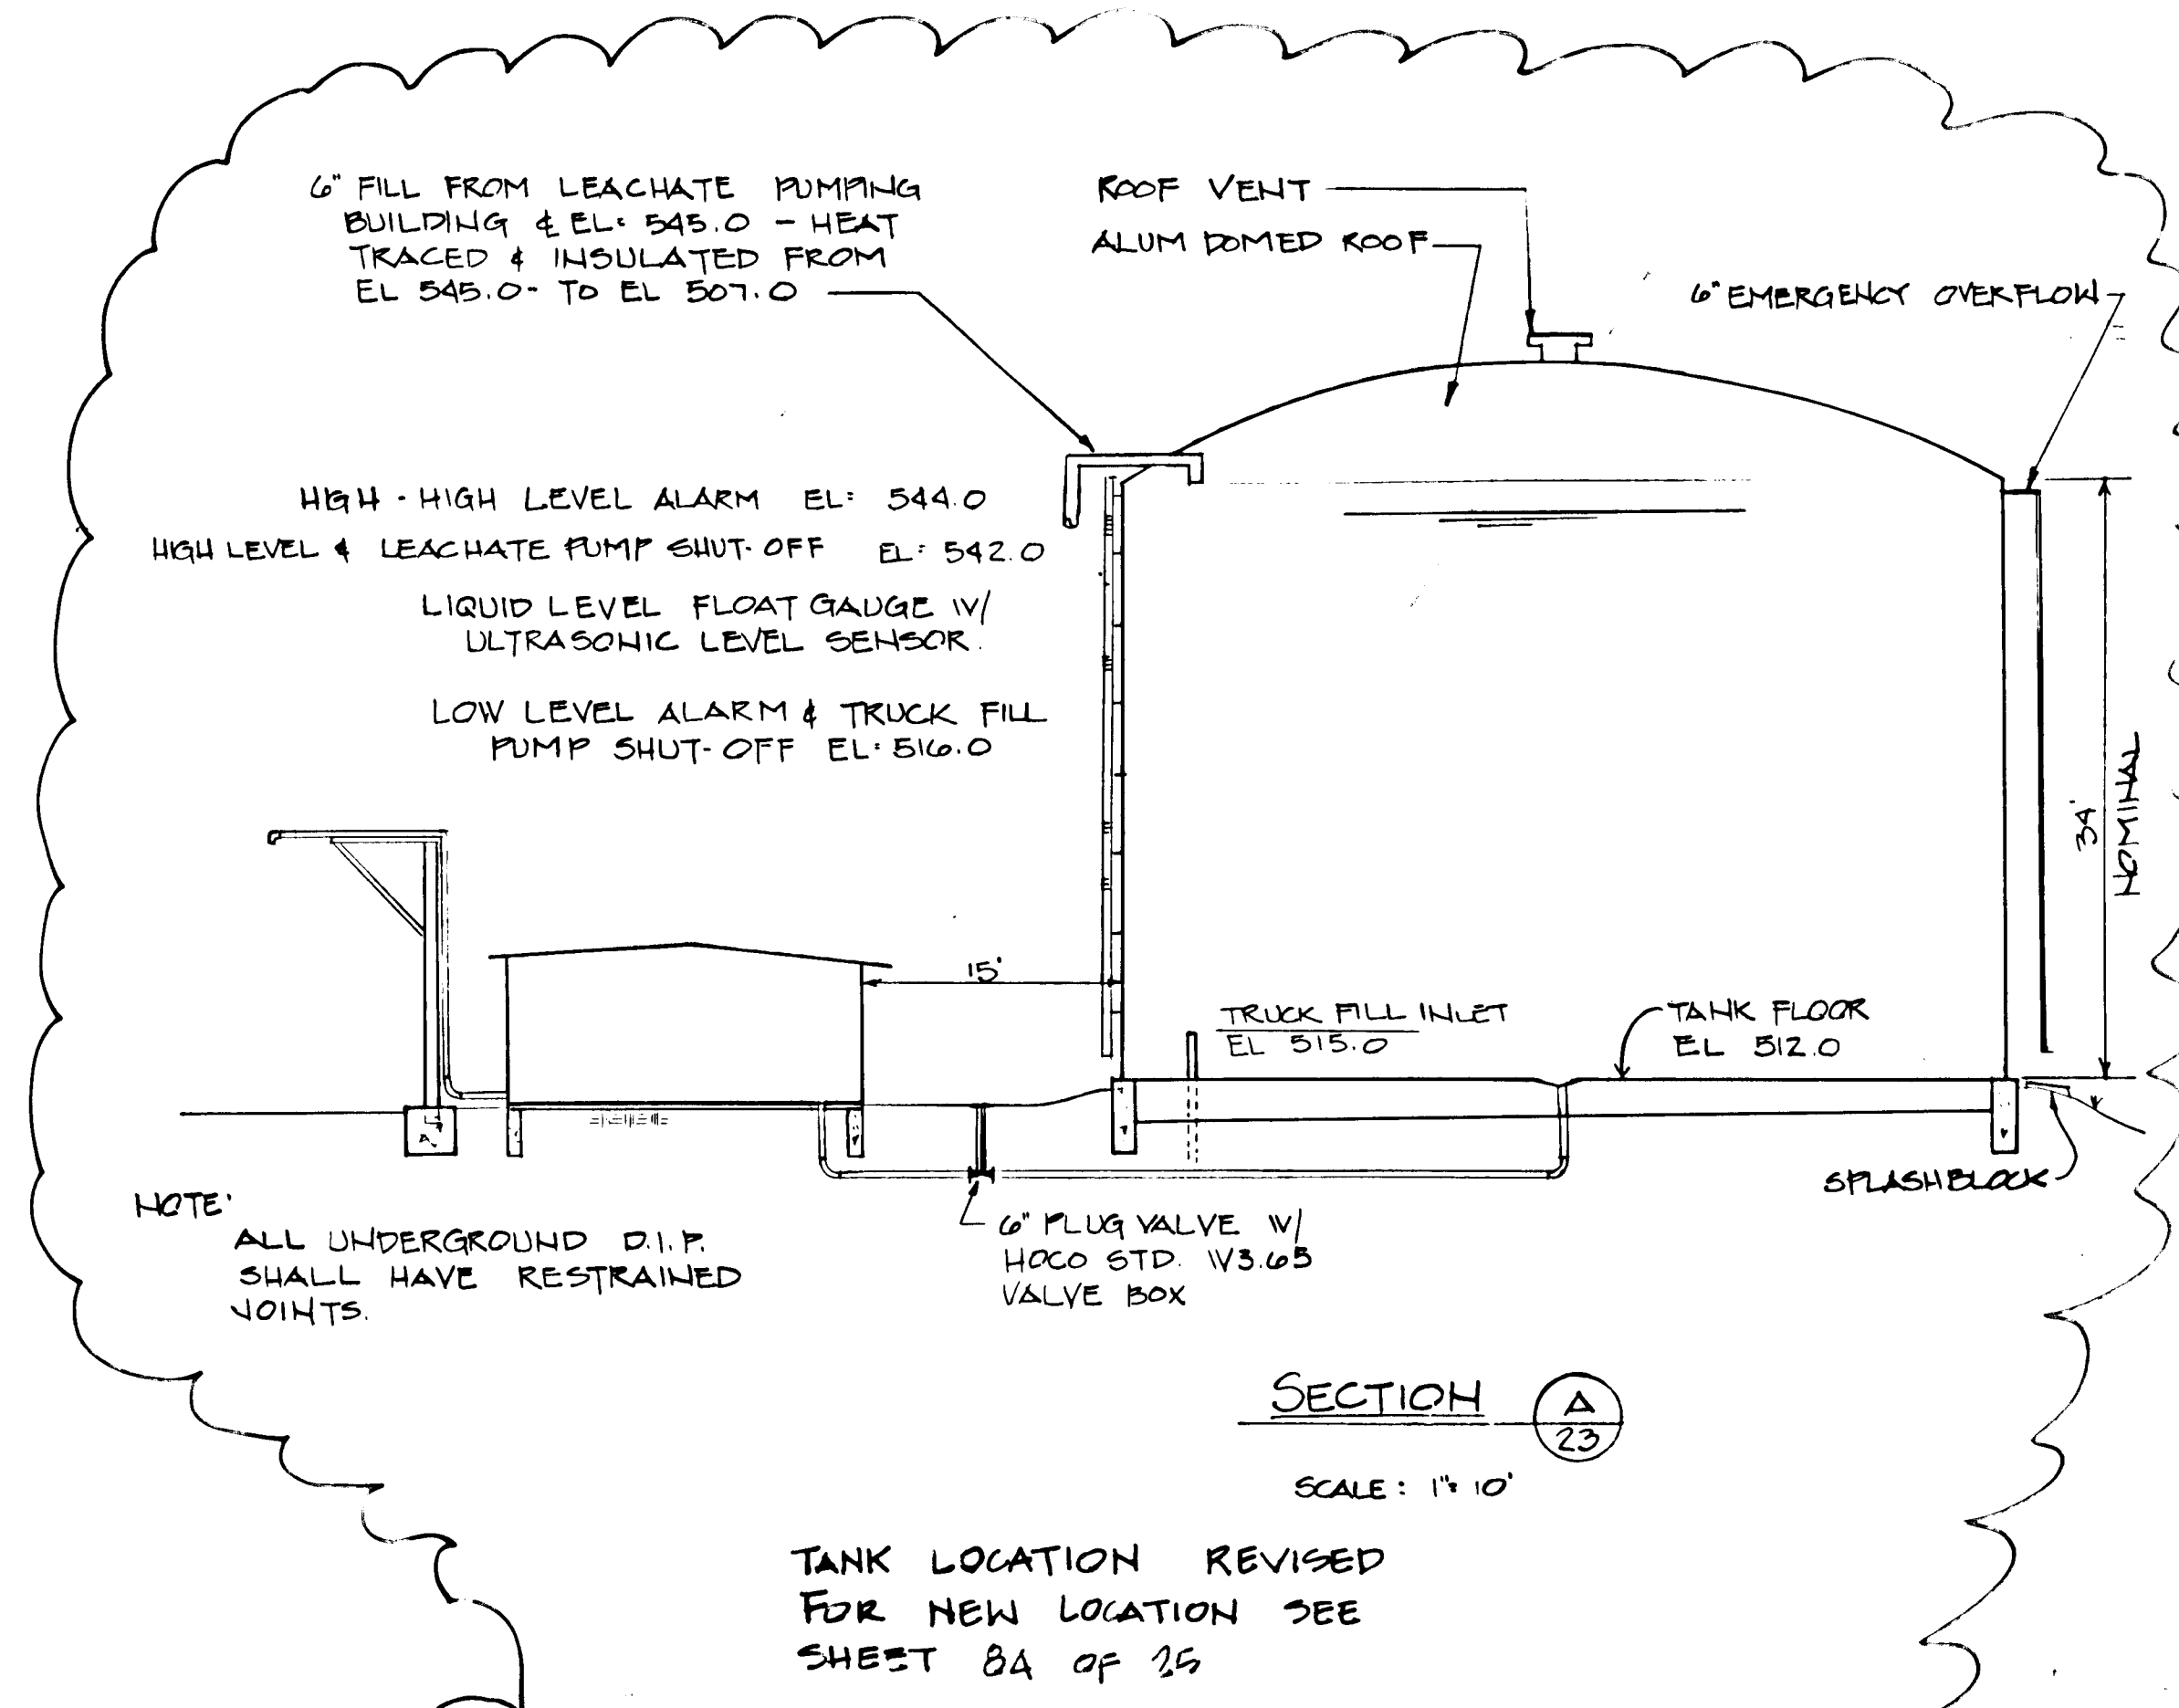 6" FILL FROM LEACHATE PUMPING
BUILDING ℄ EL: 545.0 - HEAT
TRACED & INSULATED FROM
EL 545.0- TO EL 507.0
ROOF VENT
ALUM DOMED ROOF
6" EMERGENCY OVERFLOW
HIGH - HIGH LEVEL ALARM EL: 544.0
HIGH LEVEL & LEACHATE PUMP SHUT-OFF EL: 542.0
LIQUID LEVEL FLOAT GAUGE W/
ULTRASONIC LEVEL SENSOR.
LOW LEVEL ALARM & TRUCK FILL
PUMP SHUT-OFF EL: 516.0
34'
NOMINAL
15'
TRUCK FILL INLET
EL 515.0
TANK FLOOR
EL 512.0
SPLASHBLOCK
NOTE:
ALL UNDERGROUND D.I.P.
SHALL HAVE RESTRAINED
JOINTS.
6" PLUG VALVE W/
HOCO STD. W3.65
VALVE BOX
SECTION
A
23
SCALE: 1"= 10'
TANK LOCATION REVISED
FOR NEW LOCATION SEE
SHEET 8A OF 25